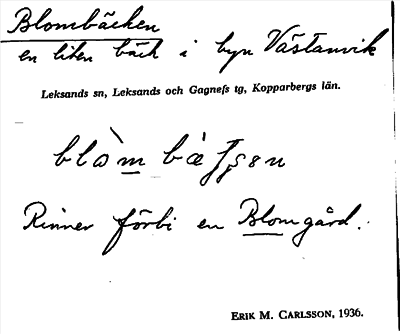 Blombäcken
en liten bäck i byn Västanvik
Leksands sn, Leksands och Gagnefs tg, Kopparbergs län.
Rinner förbi en Blomgård.
ERIK M. CARLSSON, 1936.